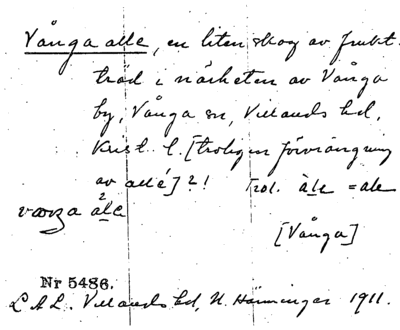 Vånga alle, en liten skog av frukt-
träd i närheten av Vånga
by, Vånga sn, Villands hd,
Krist. l. [troligen förvrängning
av allé] ?! [sol. àle = ale
vånga ále
[Vånga]
Nr 5486.
L A L. Villands hd, H. Hämninger 1911.